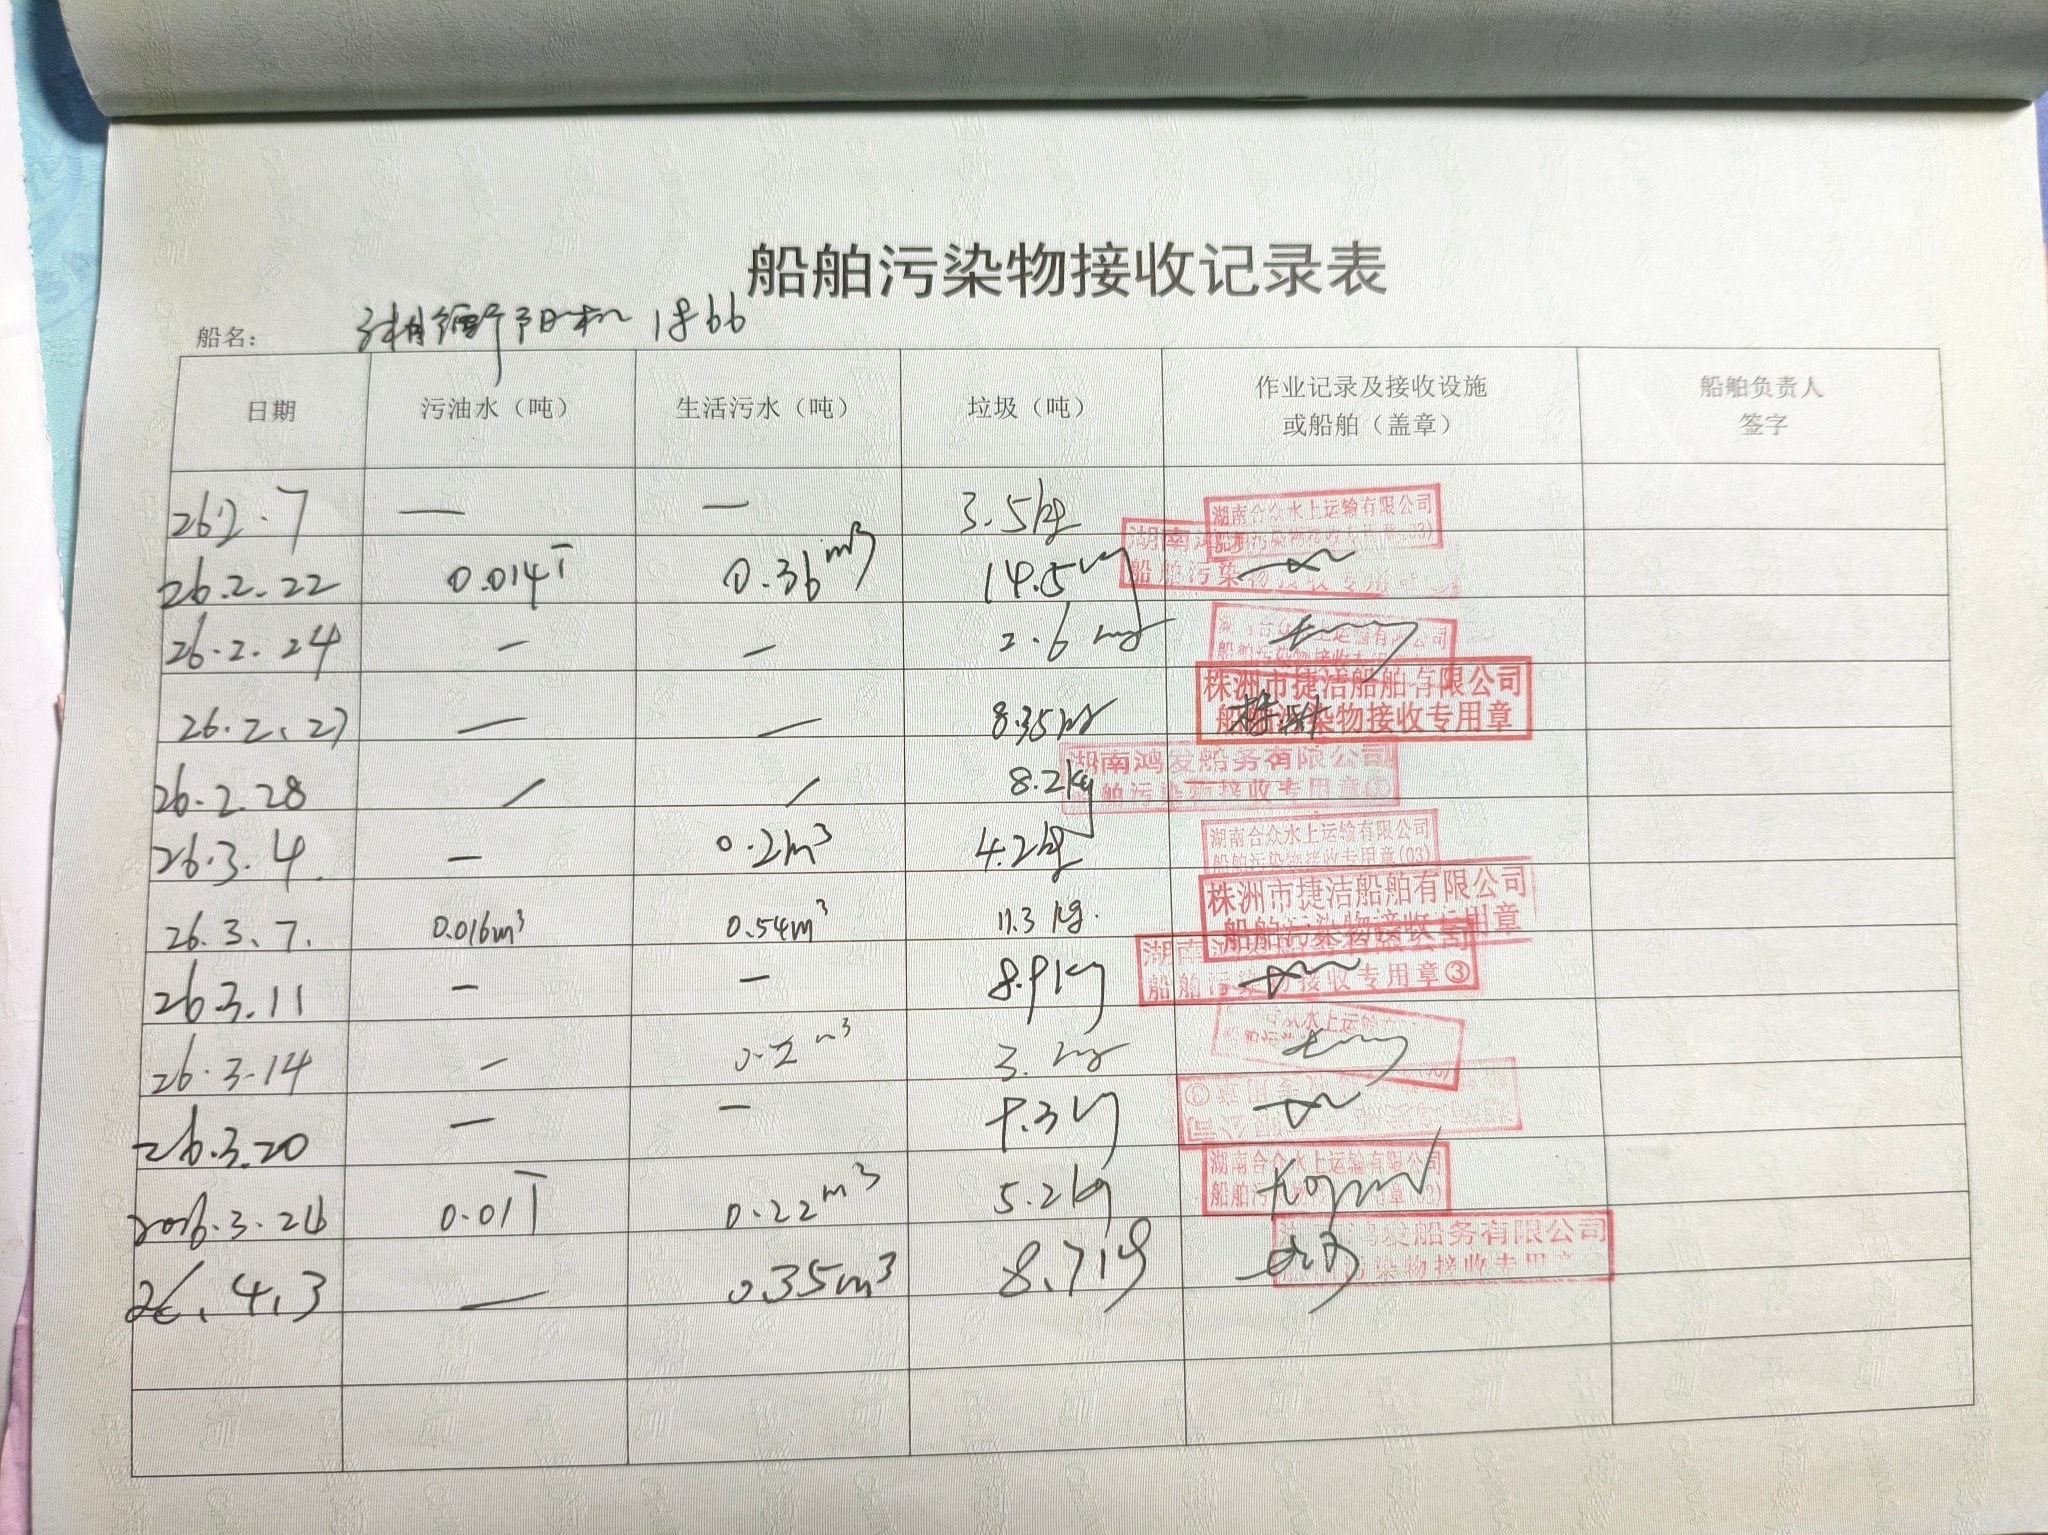 船舶污染物接收记录表
船名： 湘衡阳机1866
日期 污油水（吨） 生活污水（吨） 垃圾（吨） 作业记录及接收设施或船舶（盖章） 船舶负责人签字
26.2.7 — — 3.5kg 湖南合众水上运输有限公司
26.2.22 0.014T 0.36m³ 14.5kg 船舶污染物接收专用章
26.2.24 — — 2.6kg
26.2.27 — — 8.35kg 株洲市捷洁船舶有限公司 船舶污染物接收专用章
26.2.28 / / 8.2kg 湖南鸿发船务有限公司 船舶污染物接收专用章
26.3.4 — 0.2m³ 4.2kg 湖南合众水上运输有限公司 船舶污染物接收专用章(03)
26.3.7. 0.016m³ 0.54m³ 11.3kg. 株洲市捷洁船舶有限公司 船舶污染物接收专用章
26.3.11 — — 8.9kg 船舶污染物接收专用章③
26.3.14 — m³ 水上运输
26.3.20 — —
2026.3.26 0.01T 0.22m³ 5.2kg 湖南合众水上运输有限公司
26.4.3 — 0.35m³ 8.7kg 鸿发船务有限公司 污染物接收专用章